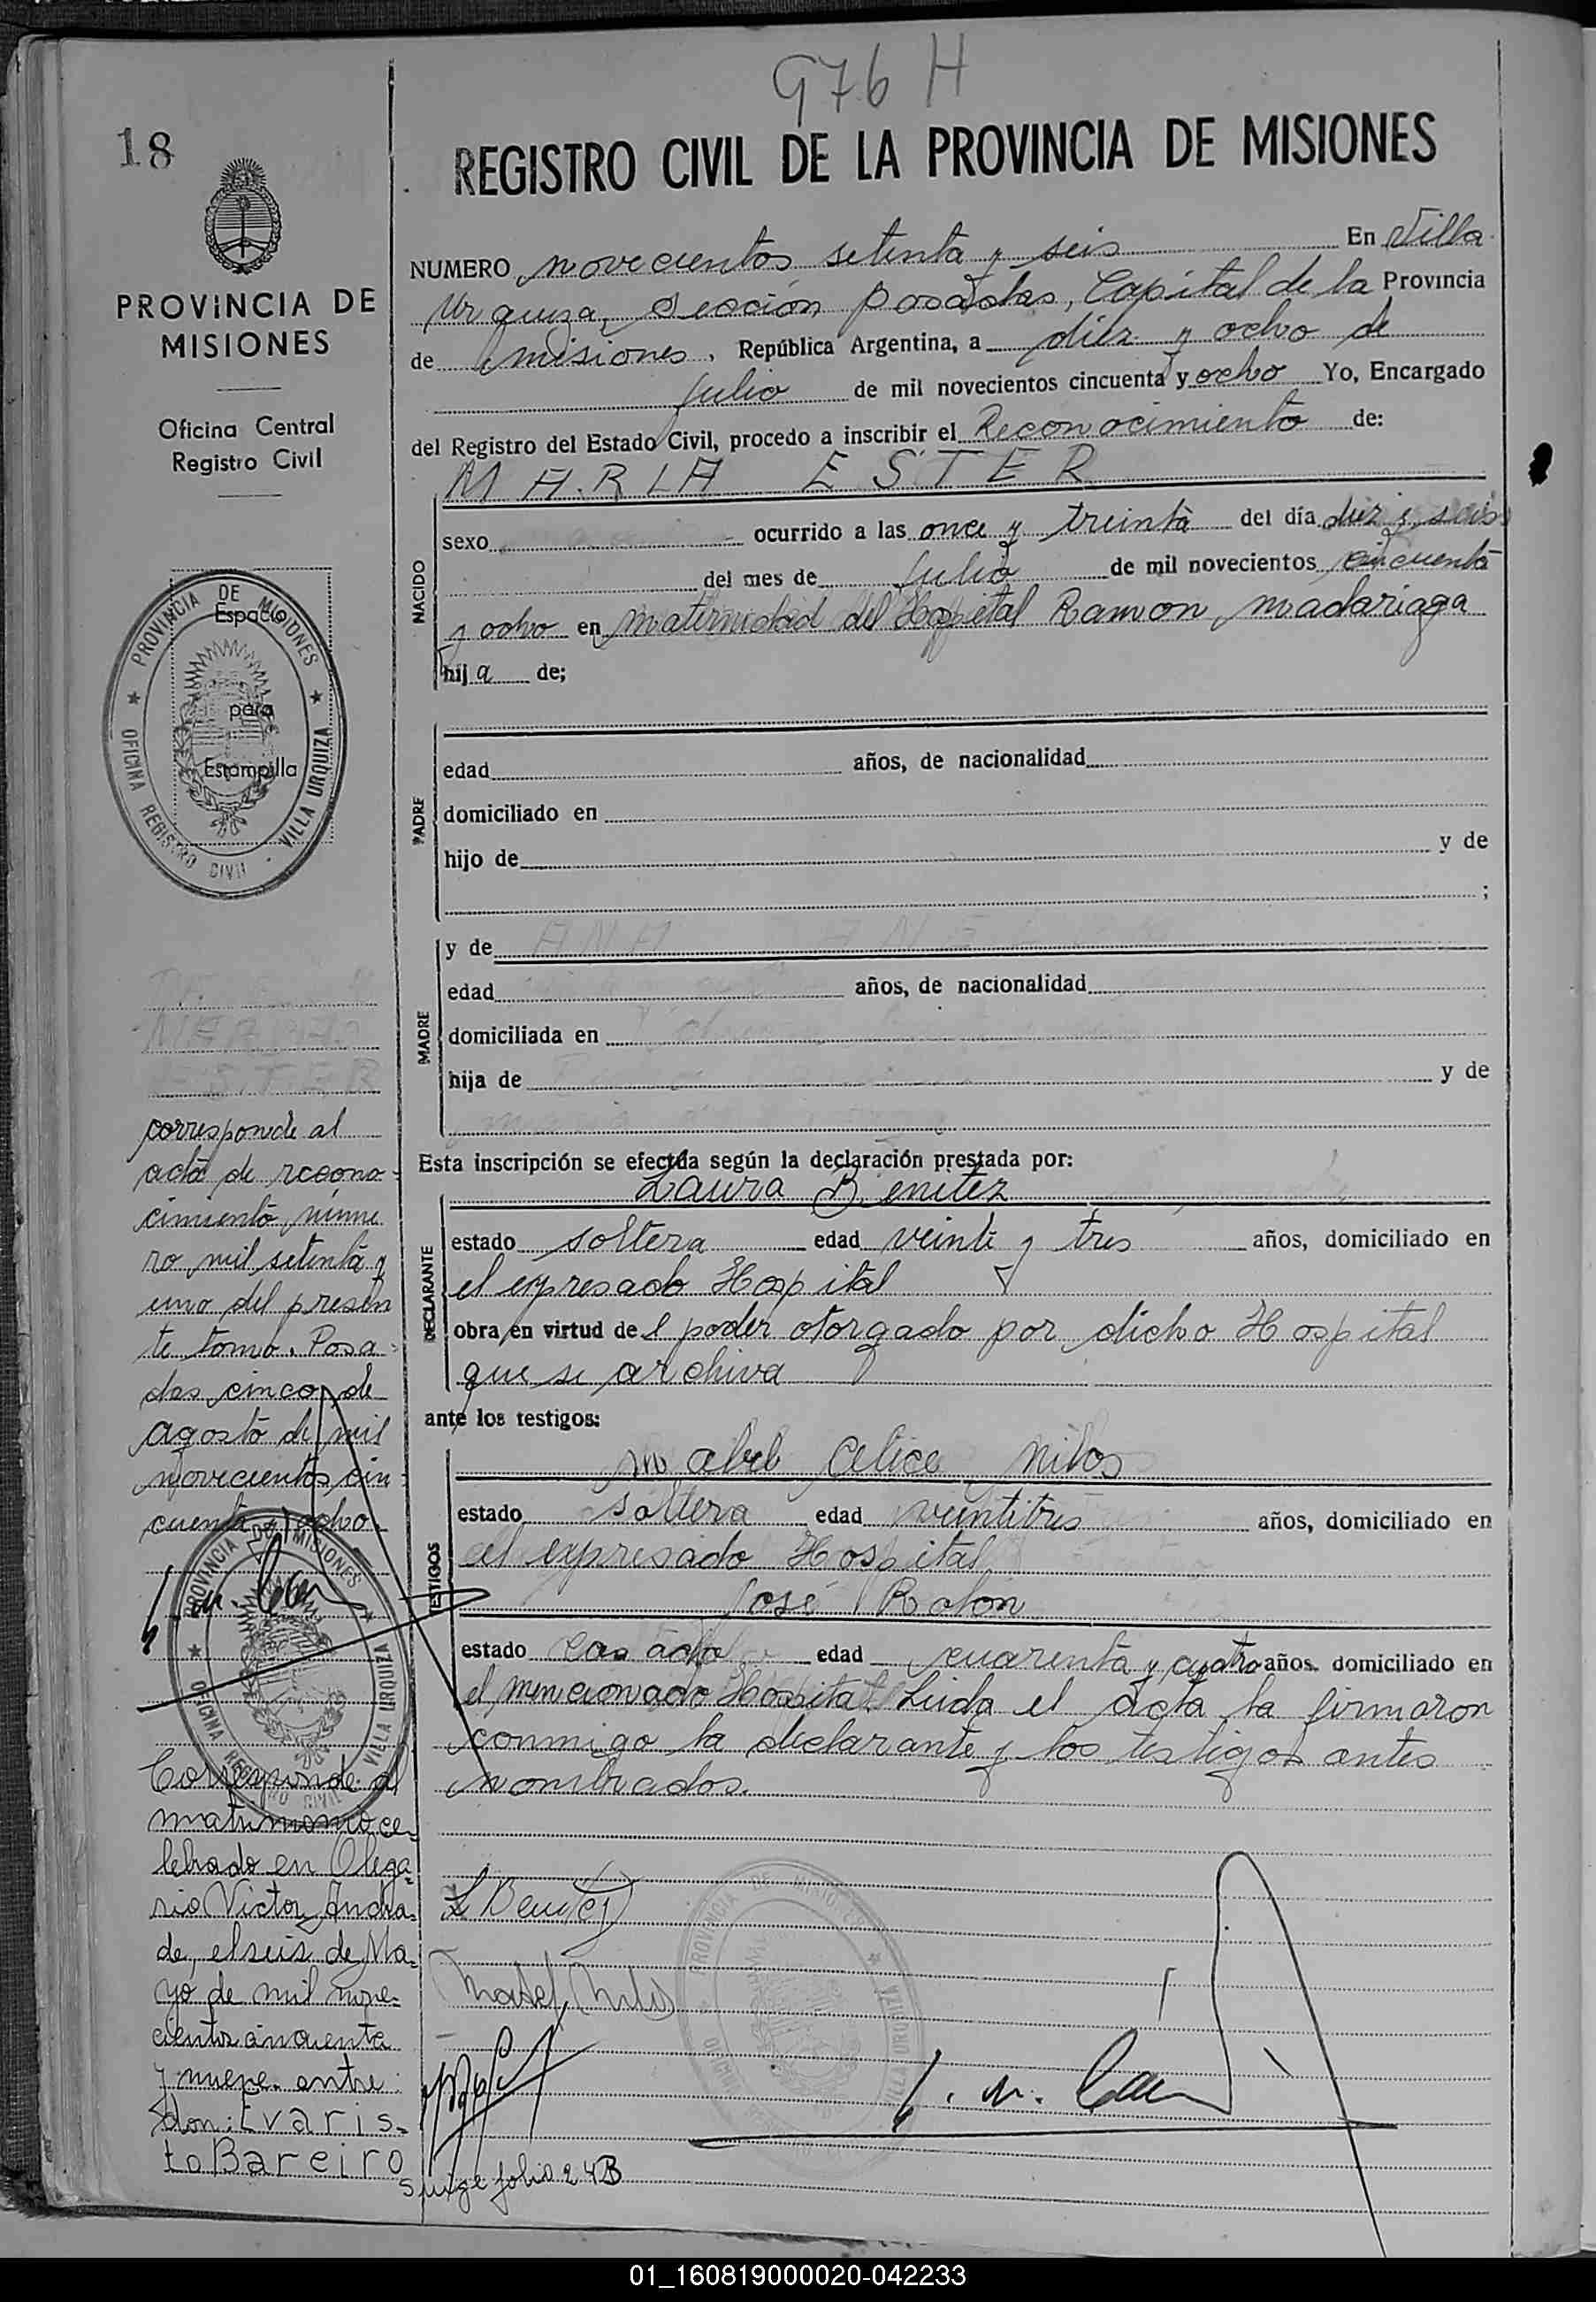 976 H
18
REGISTRO CIVIL DE LA PROVINCIA DE MISIONES
PROVINCIA DE
MISIONES
Oficina Central
Registro Civil
NUMERO novecientos setenta y seis En Villa
Urquiza, Sección Posadas, Capital de la Provincia
de Misiones, República Argentina, a diez y ocho de
Julio de mil novecientos cincuenta y ocho Yo, Encargado
del Registro del Estado Civil, procedo a inscribir el Reconocimiento de:
MARIA ESTER
NACIDO
sexo ocurrido a las once y treinta del día diez y seis
del mes de Julio de mil novecientos cincuenta
y ocho en Maternidad del Hospital Ramon Madariaga
hija de;
PADRE
edad años, de nacionalidad
domiciliado en
hijo de y de
;
MADRE
y de ANA
edad años, de nacionalidad
domiciliada en
hija de y de
Esta inscripción se efectúa según la declaración prestada por:
Laura Benitez
DECLARANTE
estado soltera edad veinte y tres años, domiciliado en
el expresado Hospital
obra en virtud del poder otorgado por dicho Hospital
que se archiva
ante los testigos:
Mabel Celice Milos
TESTIGOS
estado soltera edad veintitres años, domiciliado en
el expresado Hospital
José Rolon
estado casado edad cuarenta y cuatro años. domiciliado en
el mencionado Hospital Leida el acta la firmaron
conmigo la declarante y los testigos antes
nombrados.
L Benitez
Mabel Milos
Sigue folio 24B
PROVINCIA DE MISIONES
OFICINA REGISTRO CIVIL - VILLA URQUIZA
Espacio
para
Estampilla
MARIA
ESTER
corresponde al
acta de recono-
cimiento núme
ro mil setenta y
uno del presen
te tomo. Posa-
das cinco de
agosto de mil
novecientos cin-
cuenta y ocho
PROVINCIA DE MISIONES
OFICINA REGISTRO CIVIL VILLA URQUIZA
Corresponde al
matrimonio ce-
lebrado en Olega-
rio Victor Andra-
de, el seis de Ma-
yo de mil nove-
cientos cincuenta
y nueve entre
don: Evaris-
to Bareiro
PROVINCIA DE MISIONES
VILLA URQUIZA
01_160819000020-042233